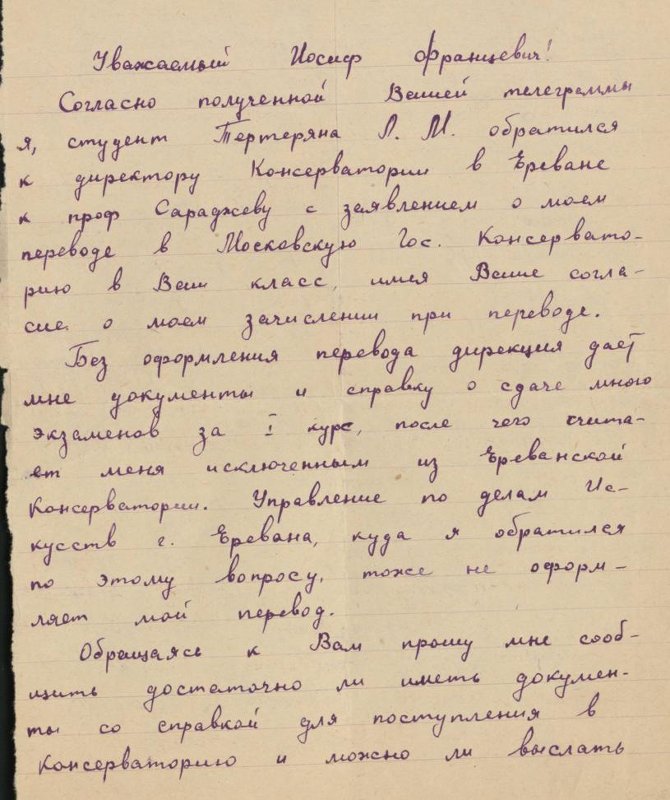 Уважаемый Иосиф Францевич!
Согласно полученной Вашей телеграммы
я, студент Тертерян Л. М. обратился
к директору Консерватории в Ереване
к проф Сараджеву с заявлением о моем
переводе в Московскую Гос. Консервато-
рию в Ваш класс, имея Ваше согла-
сие о моем зачислении при переводе.
Без оформления перевода дирекция дает
мне документы и справку о сдаче мною
экзаменов за I курс, после чего счита-
ет меня исключенным из Ереванской
Консерватории. Управление по делам Ис-
кусств г. Еревана, куда я обратился
по этому вопросу, тоже не оформ-
ляет мой перевод.
Обращаясь к Вам прошу мне сооб-
щить достаточно ли иметь докумен-
ты со справкой для поступления в
Консерваторию и можно ли выслать